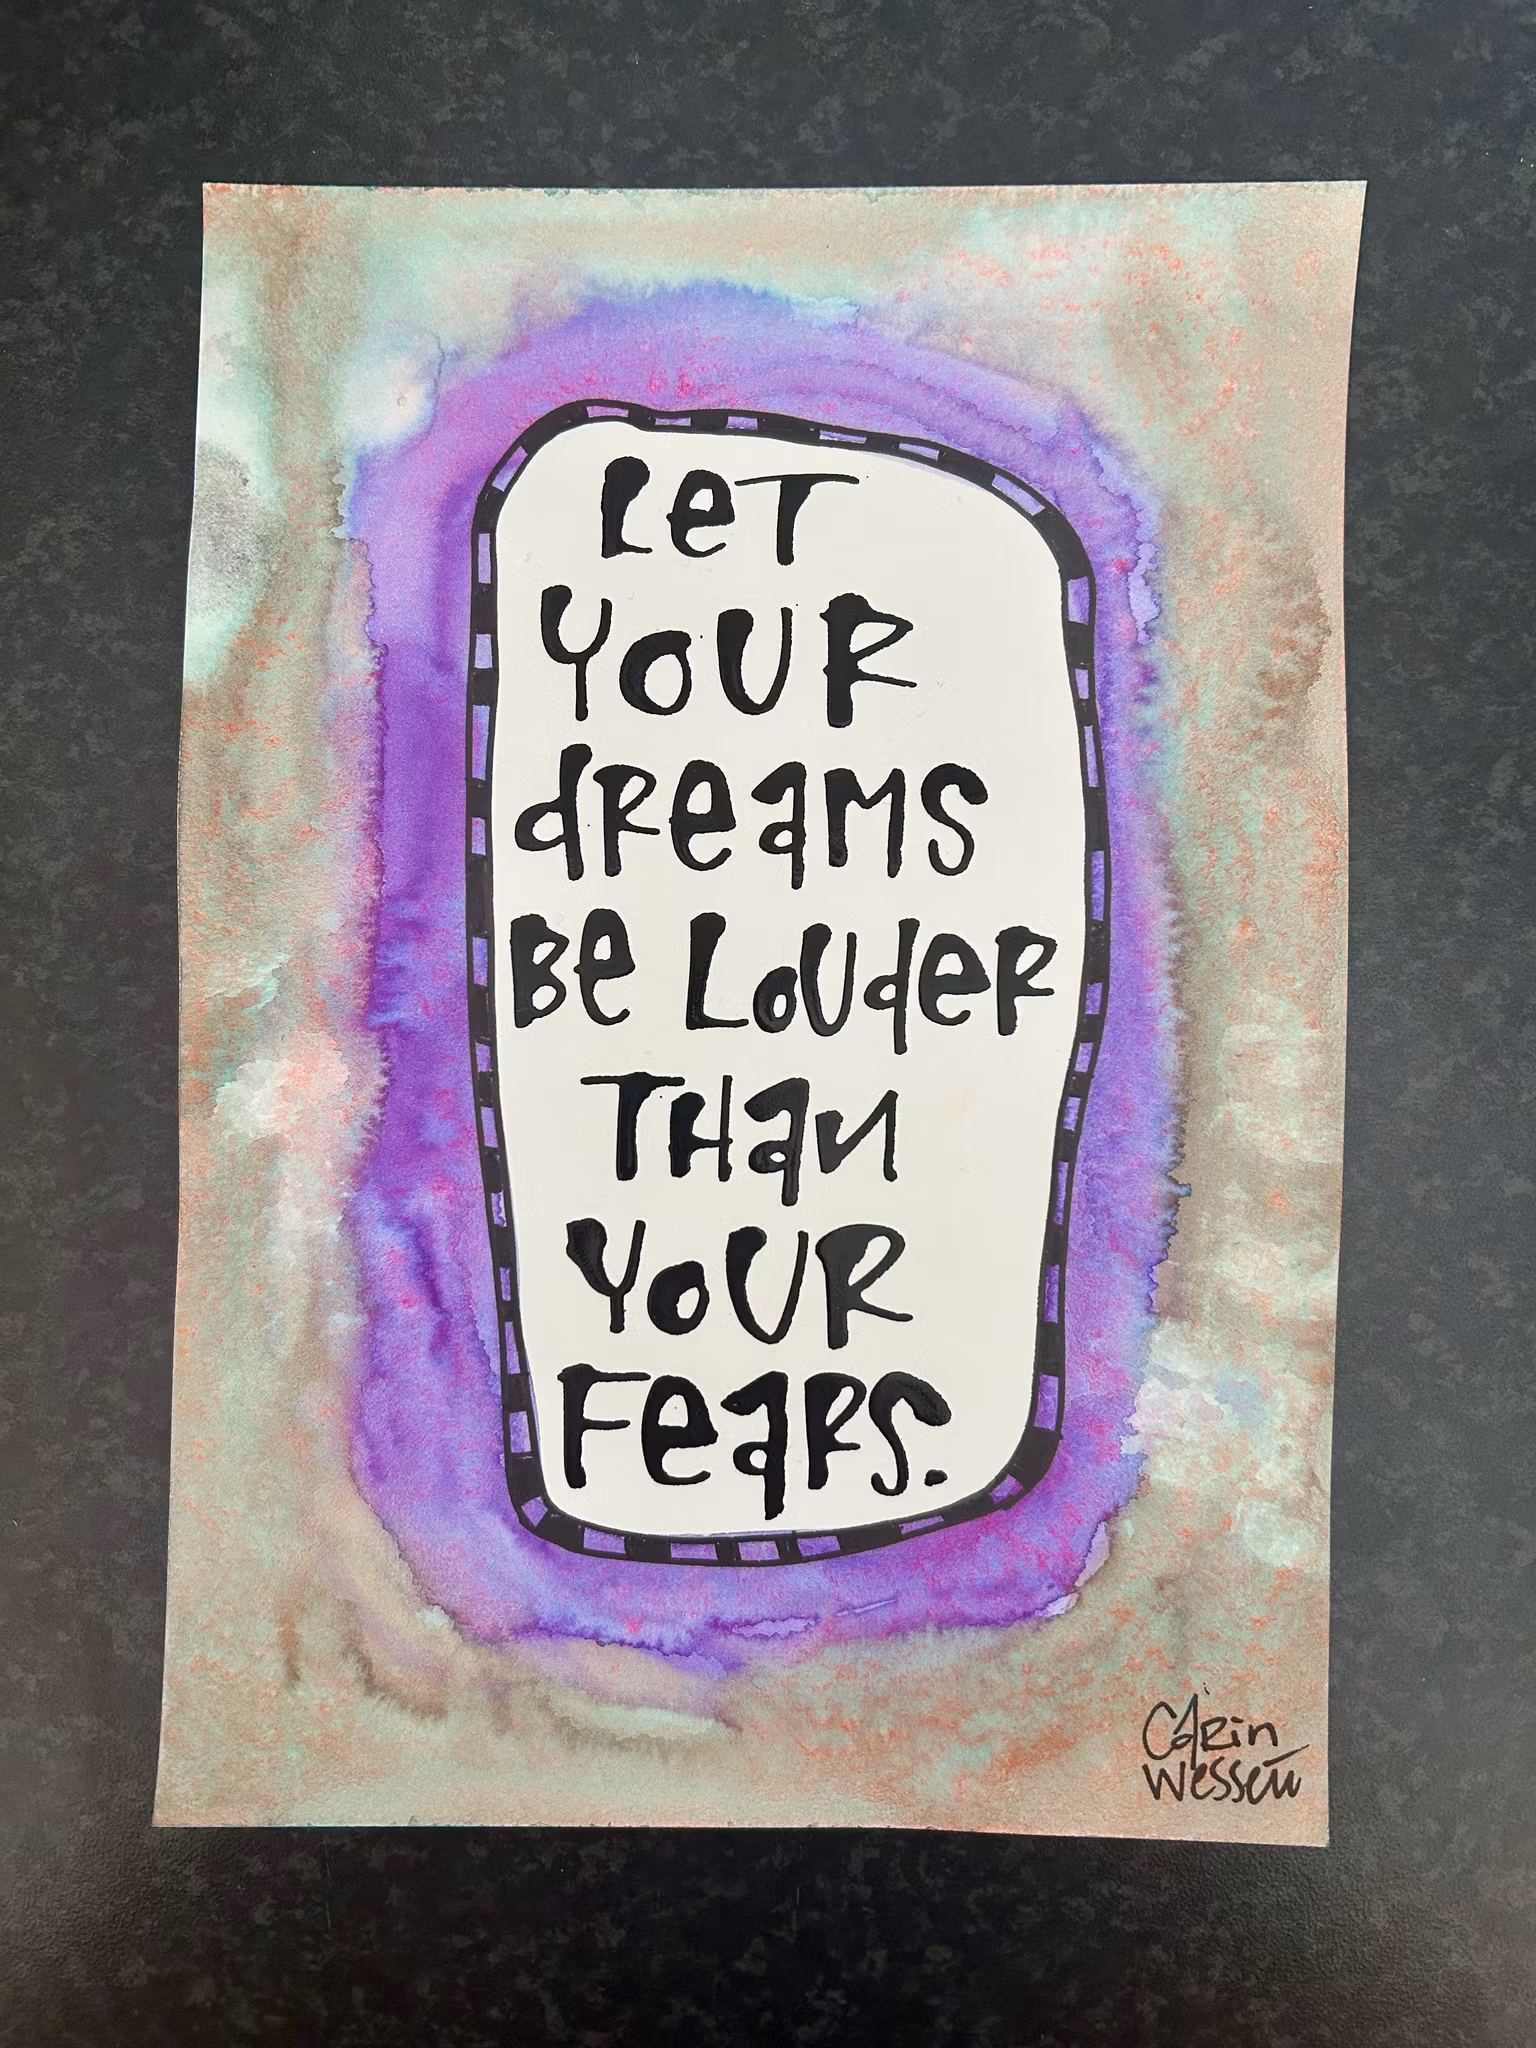 LeT
YOUR
dReaMS
Be LoUdeR
THaN
YoUR
FeaRS.
CaRin
Wessen